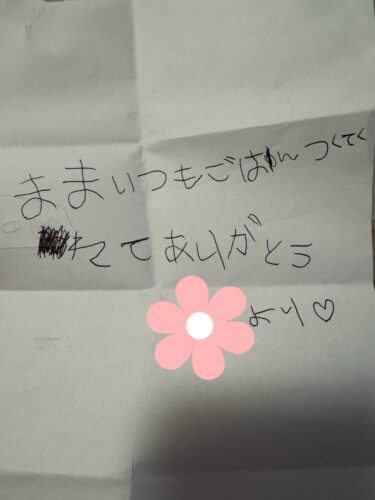 ままいつもごはんつくてく
れてありがとう
より♡